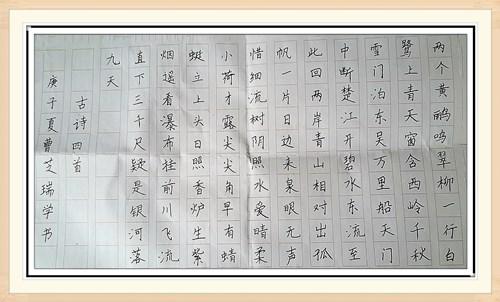 两个黄鹂鸣翠柳一行白
鹭上青天窗含西岭千秋
雪门泊东吴万里船天门
中断楚江开碧水东流至
此回两岸青山相对出孤
帆一片日边来泉眼无声
惜细流树阴照水爱晴柔
小荷才露尖尖角早有蜻
蜓立上头日照香炉生紫
烟遥看瀑布挂前川飞流
直下三千尺疑是银河落
九天
古诗四首
庚子夏曹芝瑞学书